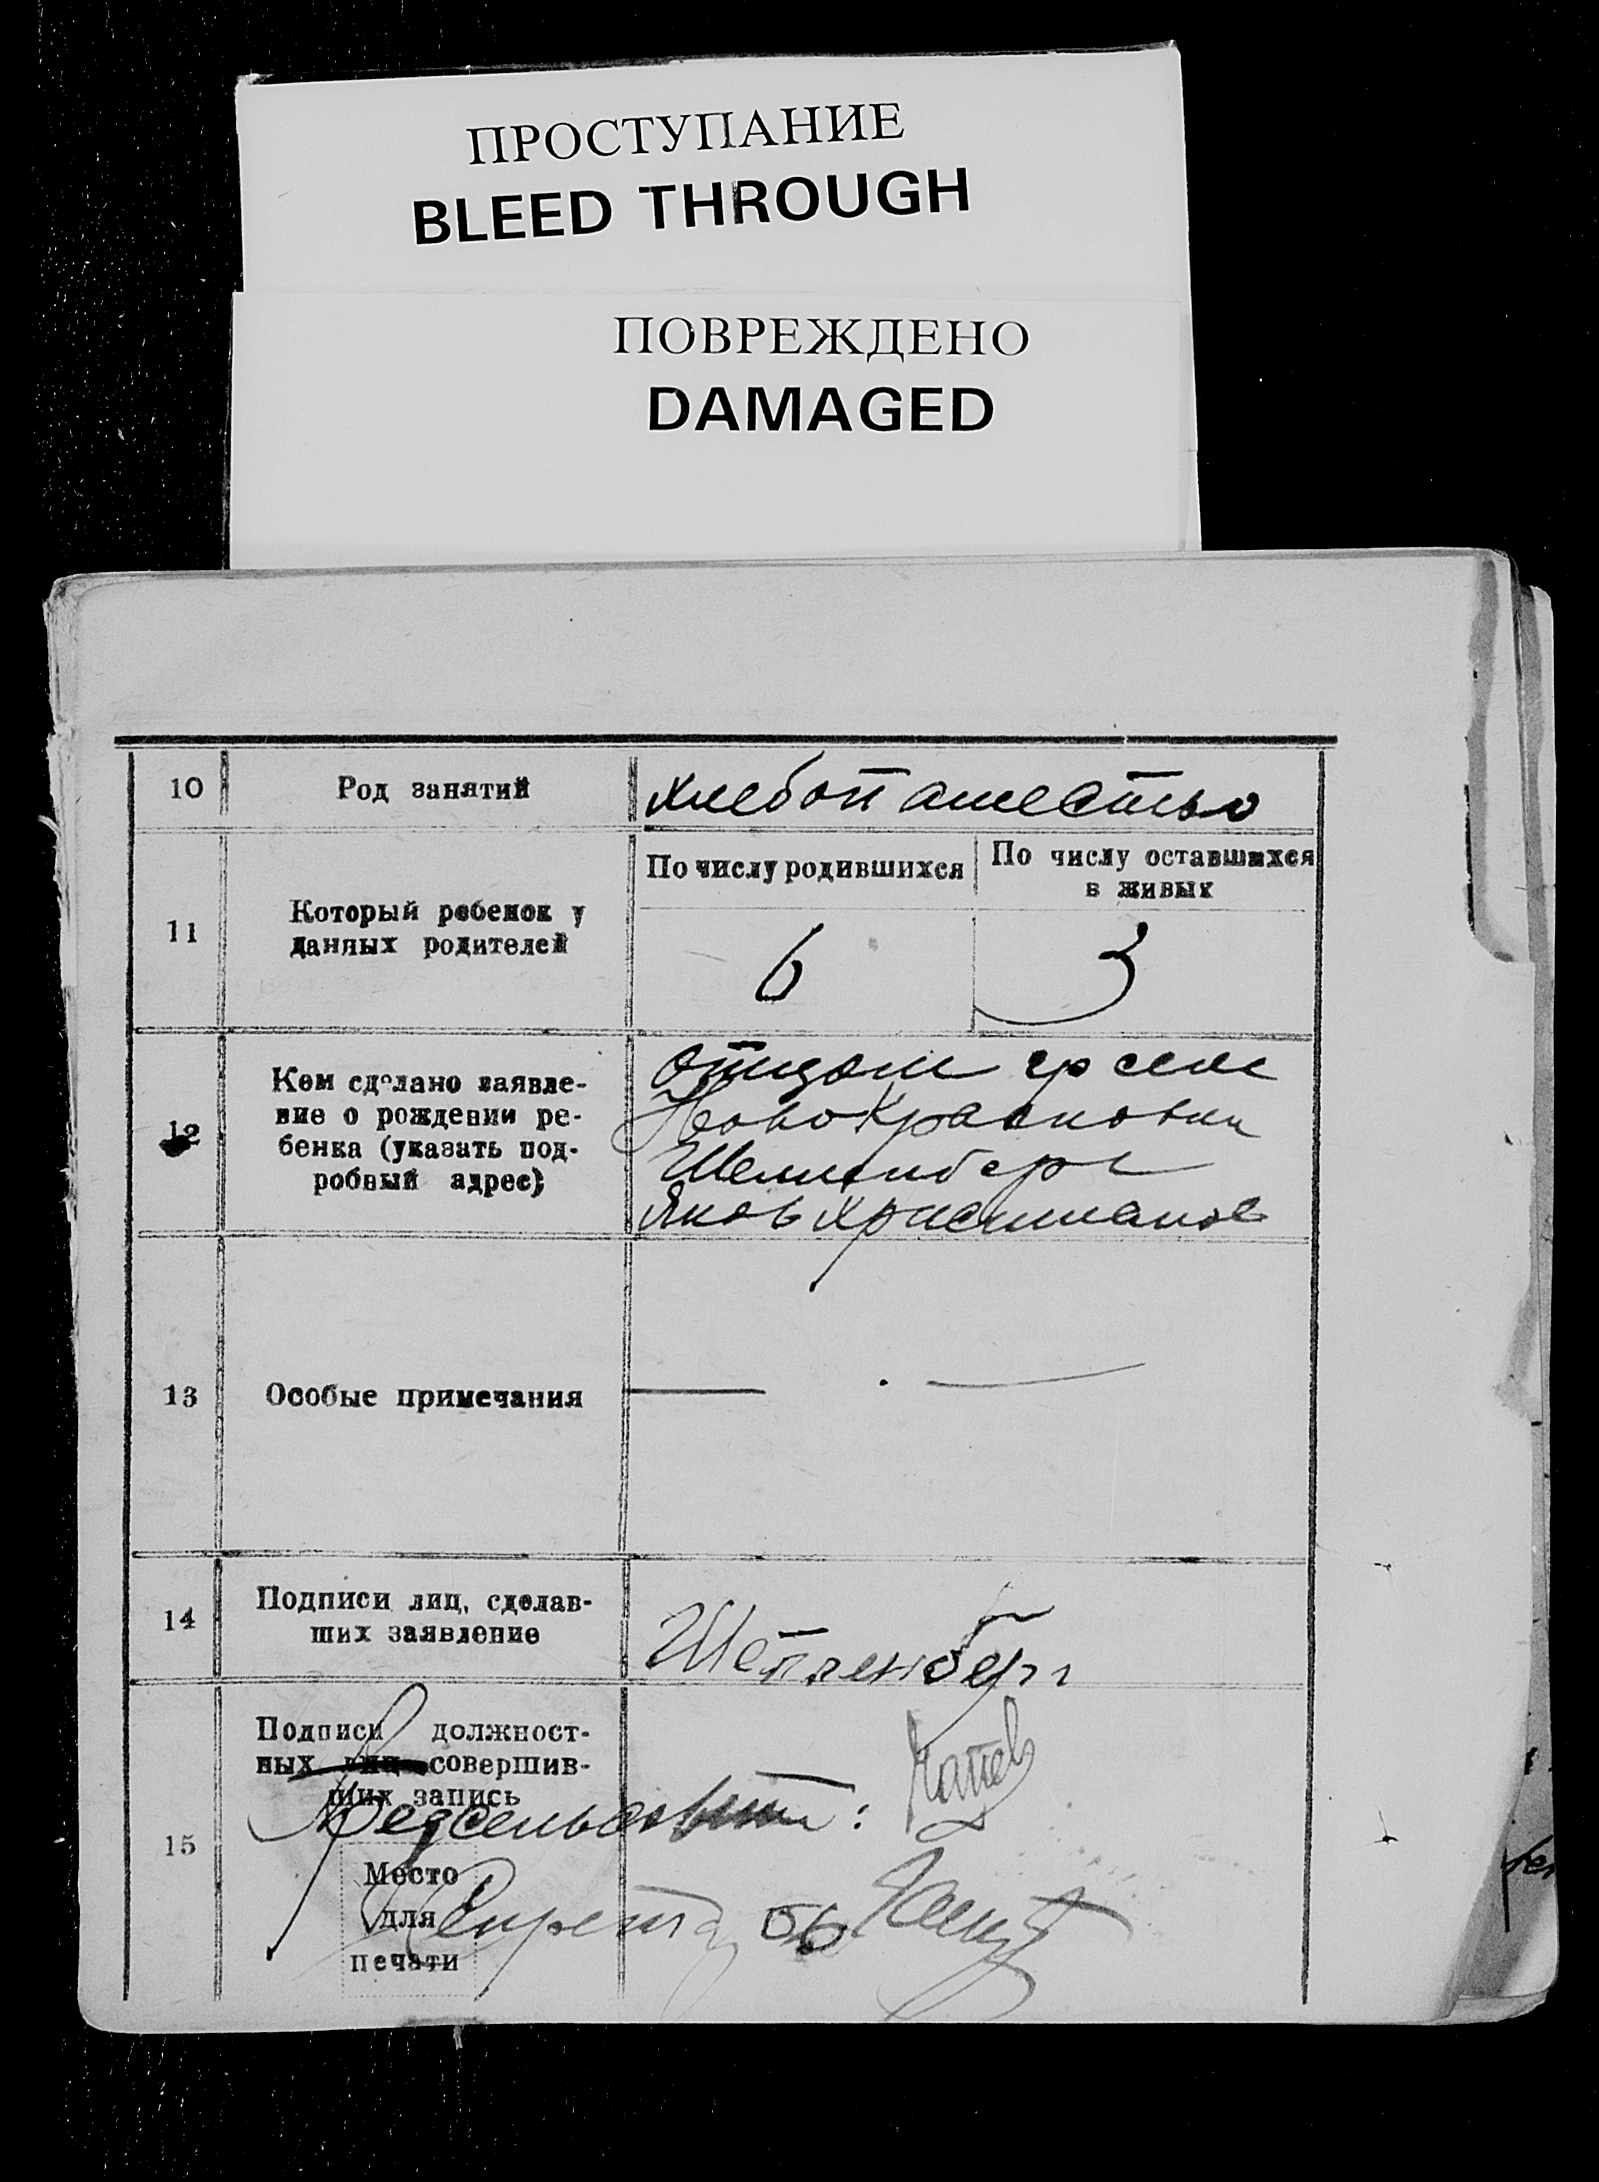 ПРОСТУПАНИЕ
BLEED THROUGH
ПОВРЕЖДЕНО
DAMAGED
10 Род занятий хлебопашество
11 Который ребенок у данных родителей
По числу родившихся
По числу оставшихся
в живых
6 3
12 Кем сделано заявле-
ние о рождении ре-
бенка (указать под-
робный адрес)
отцом гр села
Ново Красновки
Яков Христианов
13 Особые примечания — . —
14 Подписи лиц, сделав-
ших заявление
Штепленберг
15 Подписи должност-
ных лиц совершив-
ших запись
Предсельсовета:
Место
для
печати
Секретарь